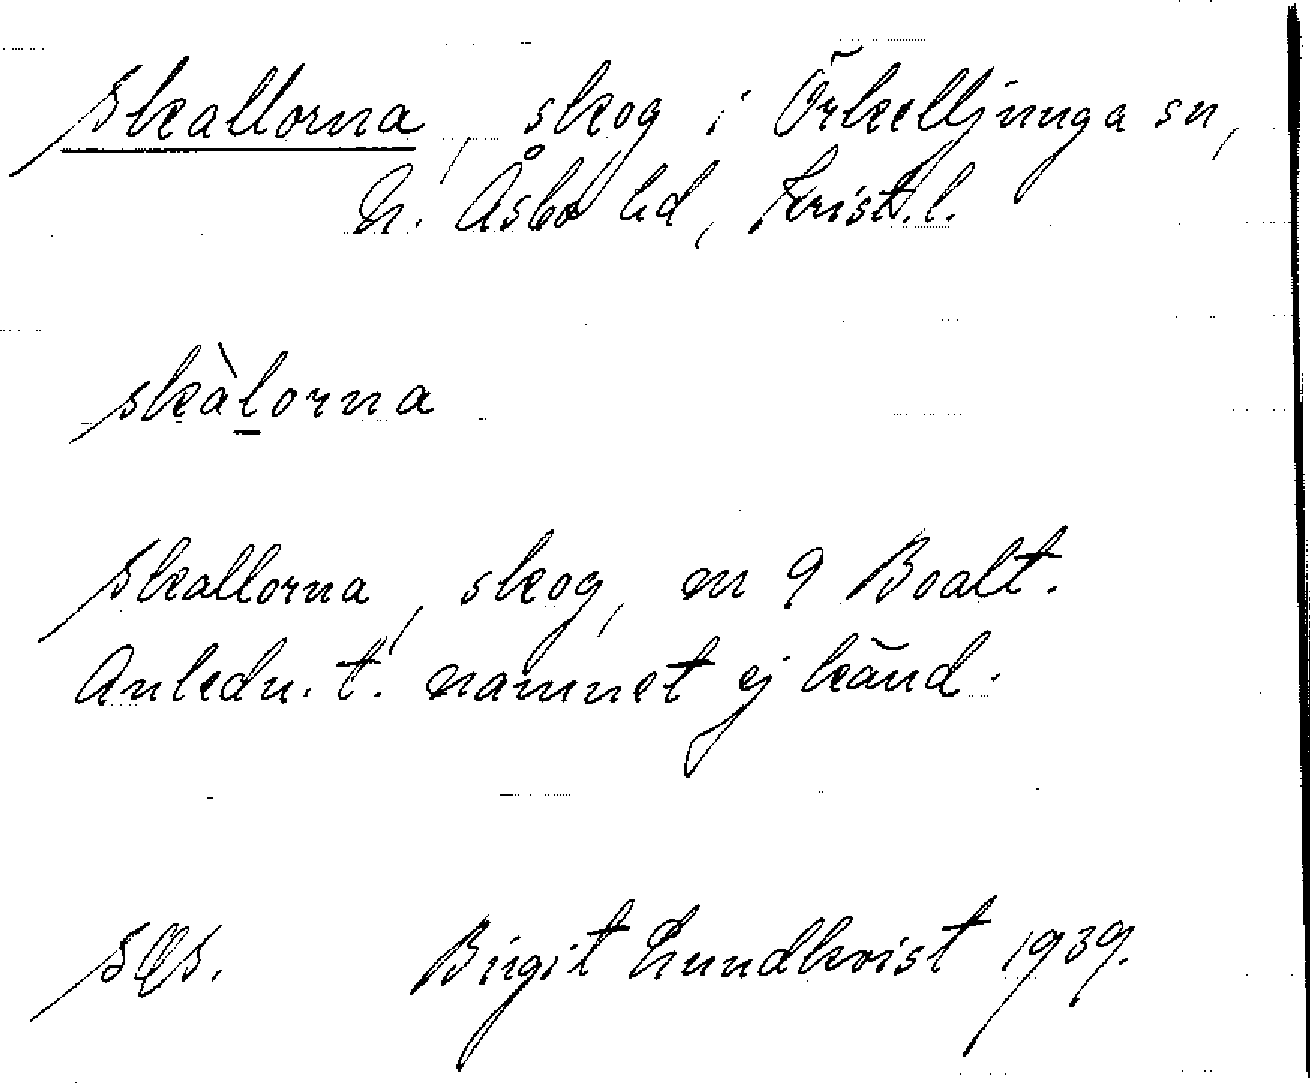 Skallorna, skog i Örkelljunga sn,
N. Åsbo hd, Krist. l.
skàlorna
Skallorna, skog, en 9 Boalt.
Anledn. t. namnet ej känd.
Birgit Lundkvist 1939.